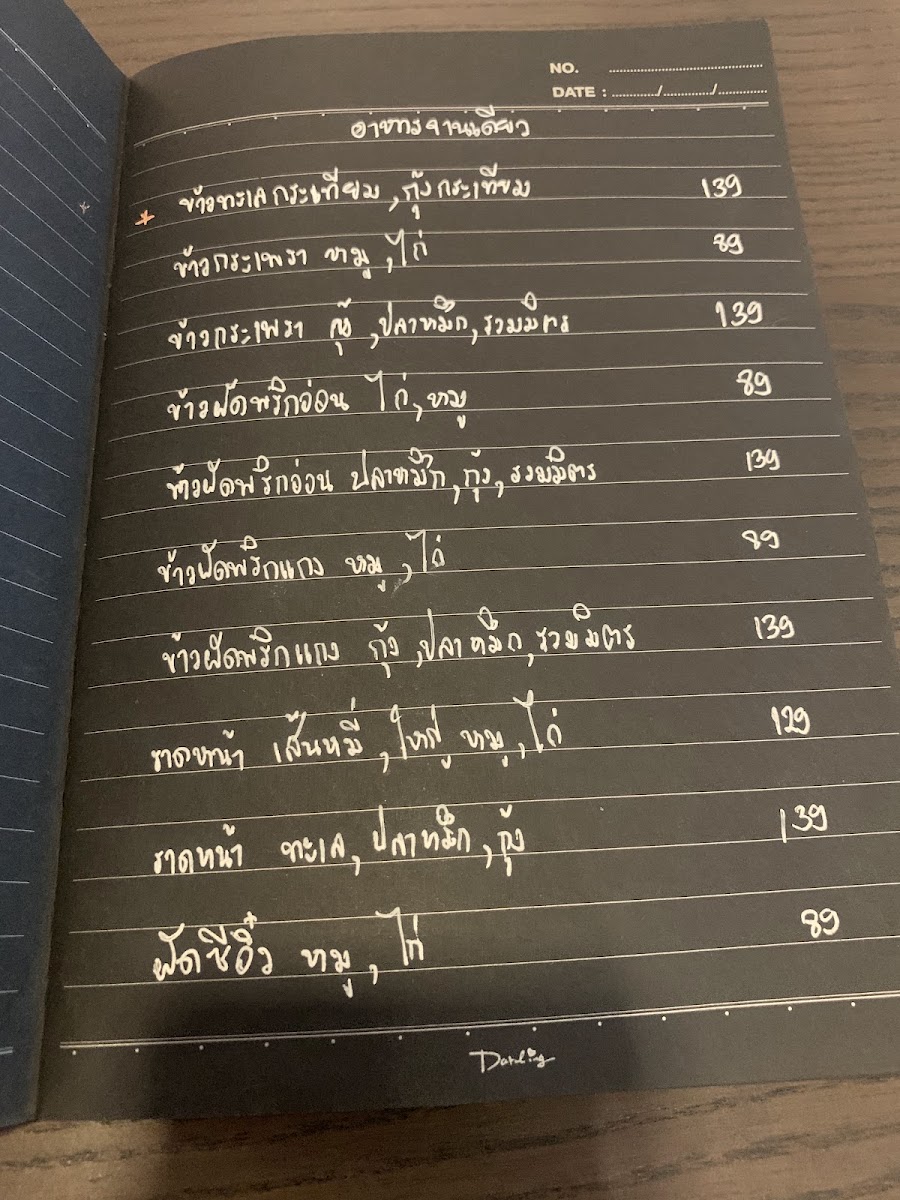 NO. ........................................
DATE : ............/............/............
อาหารจานเดียว
* ข้าวทะเลกระเทียม ,กุ้งกระเทียม 139
ข้าวกระเพรา หมู ,ไก่ 89
ข้าวกระเพรา กุ้ง ,ปลาหมึก ,รวมมิตร 139
ข้าวผัดพริกอ่อน ไก่ ,หมู 89
ข้าวผัดพริกอ่อน ปลาหมึก ,กุ้ง ,รวมมิตร 139
ข้าวผัดพริกแกง หมู ,ไก่ 89
ข้าวผัดพริกแกง กุ้ง ,ปลาหมึก ,รวมมิตร 139
ราดหน้า เส้นหมี่ ,ใหญ่ หมู ,ไก่ 129
ราดหน้า ทะเล ,ปลาหมึก ,กุ้ง 139
ผัดซีอิ๋ว หมู ,ไก่ 89
Darling